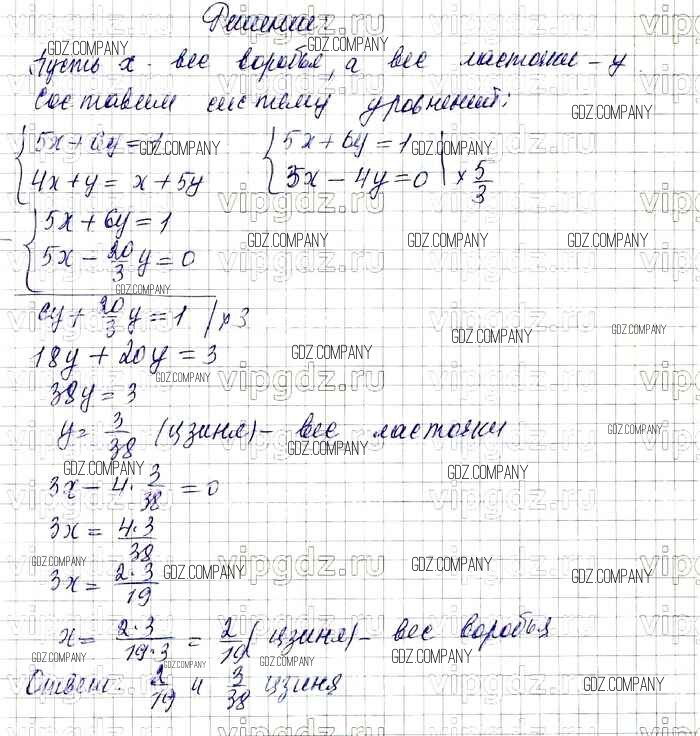 Решение:
Пусть x - вес воробья, а вес ласточки - y
Составим систему уравнений:
5x + 6y = 1
4x + y = x + 5y
5x + 6y = 1
3x - 4y = 0 | × 5/3
5x + 6y = 1
5x - 20/3 y = 0
6y + 20/3 y = 1 | × 3
18y + 20y = 3
38y = 3
y = 3/38 (цзиня) - вес ласточки
3x - 4 · 3/38 = 0
3x = 4·3/38
3x = 2·3/19
x = 2·3/19·3 = 2/19 (цзиня) - вес воробья
Ответ: 2/19 и 3/38 цзиня
GDZ.COMPANY
vipgdz.ru